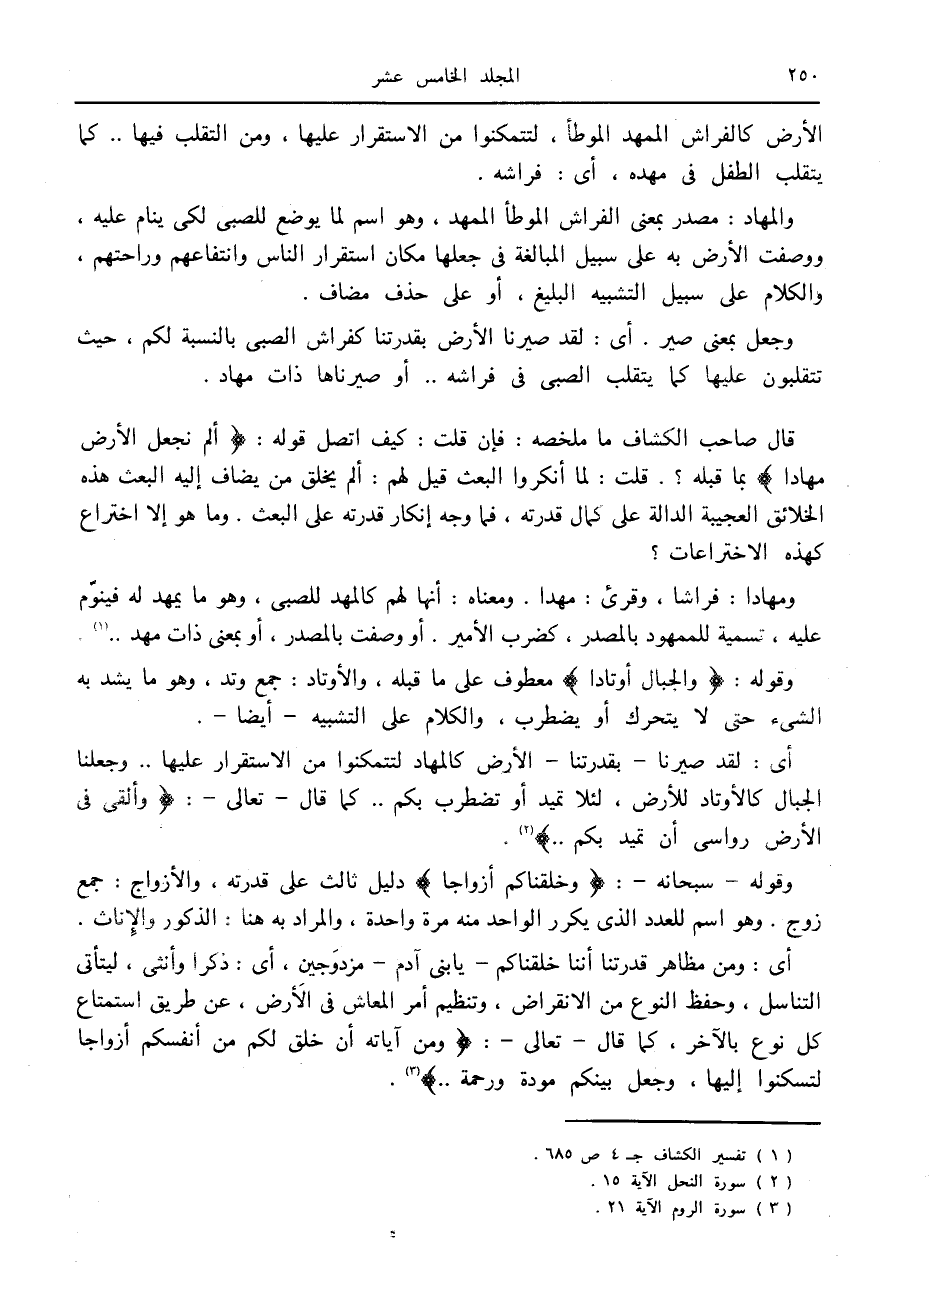 ٢٥٠ المجلد الخامس عشر
الأرض كالفراش الممهد الموطأ ، لتتمكنوا من الاستقرار عليها ، ومن التقلب فيها .. كما
يتقلب الطفل فى مهده ، أى : فراشه .
والمهاد : مصدر بمعنى الفراش الموطأ الممهد ، وهو اسم لما يوضع للصبى لكى ينام عليه ،
ووصفت الأرض به على سبيل المبالغة فى جعلها مكان استقرار الناس وانتفاعهم وراحتهم ،
والكلام على سبيل التشبيه البليغ ، أو على حذف مضاف .
وجعل بمعنى صير . أى : لقد صيرنا الأرض بقدرتنا كفراش الصبى بالنسبة لكم ، حيث
تتقلبون عليها كما يتقلب الصبى فى فراشه .. أو صيرناها ذات مهاد .
قال صاحب الكشاف ما ملخصه : فإن قلت : كيف اتصل قوله : ﴿ ألم نجعل الأرض
مهادا ﴾ بما قبله ؟ . قلت : لما أنكروا البعث قيل لهم : ألم يخلق من يضاف إليه البعث هذه
الخلائق العجيبة الدالة على كمال قدرته ، فما وجه إنكار قدرته على البعث . وما هو إلا اختراع
كهذه الاختراعات ؟
ومهادا : فراشا ، وقرئ : مهدا . ومعناه : أنها لهم كالمهد للصبى ، وهو ما يمهد له فينوّم
عليه ، تسمية للممهود بالمصدر ، كضرب الأمير . أو وصفت بالمصدر ، أو بمعنى ذات مهد ..(١) .
وقوله : ﴿ والجبال أوتادا ﴾ معطوف على ما قبله ، والأوتاد : جمع وتد ، وهو ما يشد به
الشىء حتى لا يتحرك أو يضطرب ، والكلام على التشبيه – أيضا – .
أى : لقد صيرنا – بقدرتنا – الأرض كالمهاد لتتمكنوا من الاستقرار عليها .. وجعلنا
الجبال كالأوتاد للأرض ، لئلا تميد أو تضطرب بكم .. كما قال – تعالى – : ﴿ وألقى فى
الأرض رواسى أن تميد بكم ..﴾(٢) .
وقوله – سبحانه – : ﴿ وخلقناكم أزواجا ﴾ دليل ثالث على قدرته ، والأزواج : جمع
زوج . وهو اسم للعدد الذى يكرر الواحد منه مرة واحدة ، والمراد به هنا : الذكور والإناث .
أى : ومن مظاهر قدرتنا أننا خلقناكم – يابنى آدم – مزدوَجين ، أى : ذكرا وأنثى ، ليتأتى
التناسل ، وحفظ النوع من الانقراض ، وتنظيم أمر المعاش فى الأرض ، عن طريق استمتاع
كل نوع بالآخر ، كما قال – تعالى – : ﴿ ومن آياته أن خلق لكم من أنفسكم أزواجا
لتسكنوا إليها ، وجعل بينكم مودة ورحمة ..﴾(٣) .
( ١ ) تفسير الكشاف جـ ٤ ص ٦٨٥ .
( ٢ ) سورة النحل الآية ١٥ .
( ٣ ) سورة الروم الآية ٢١ .